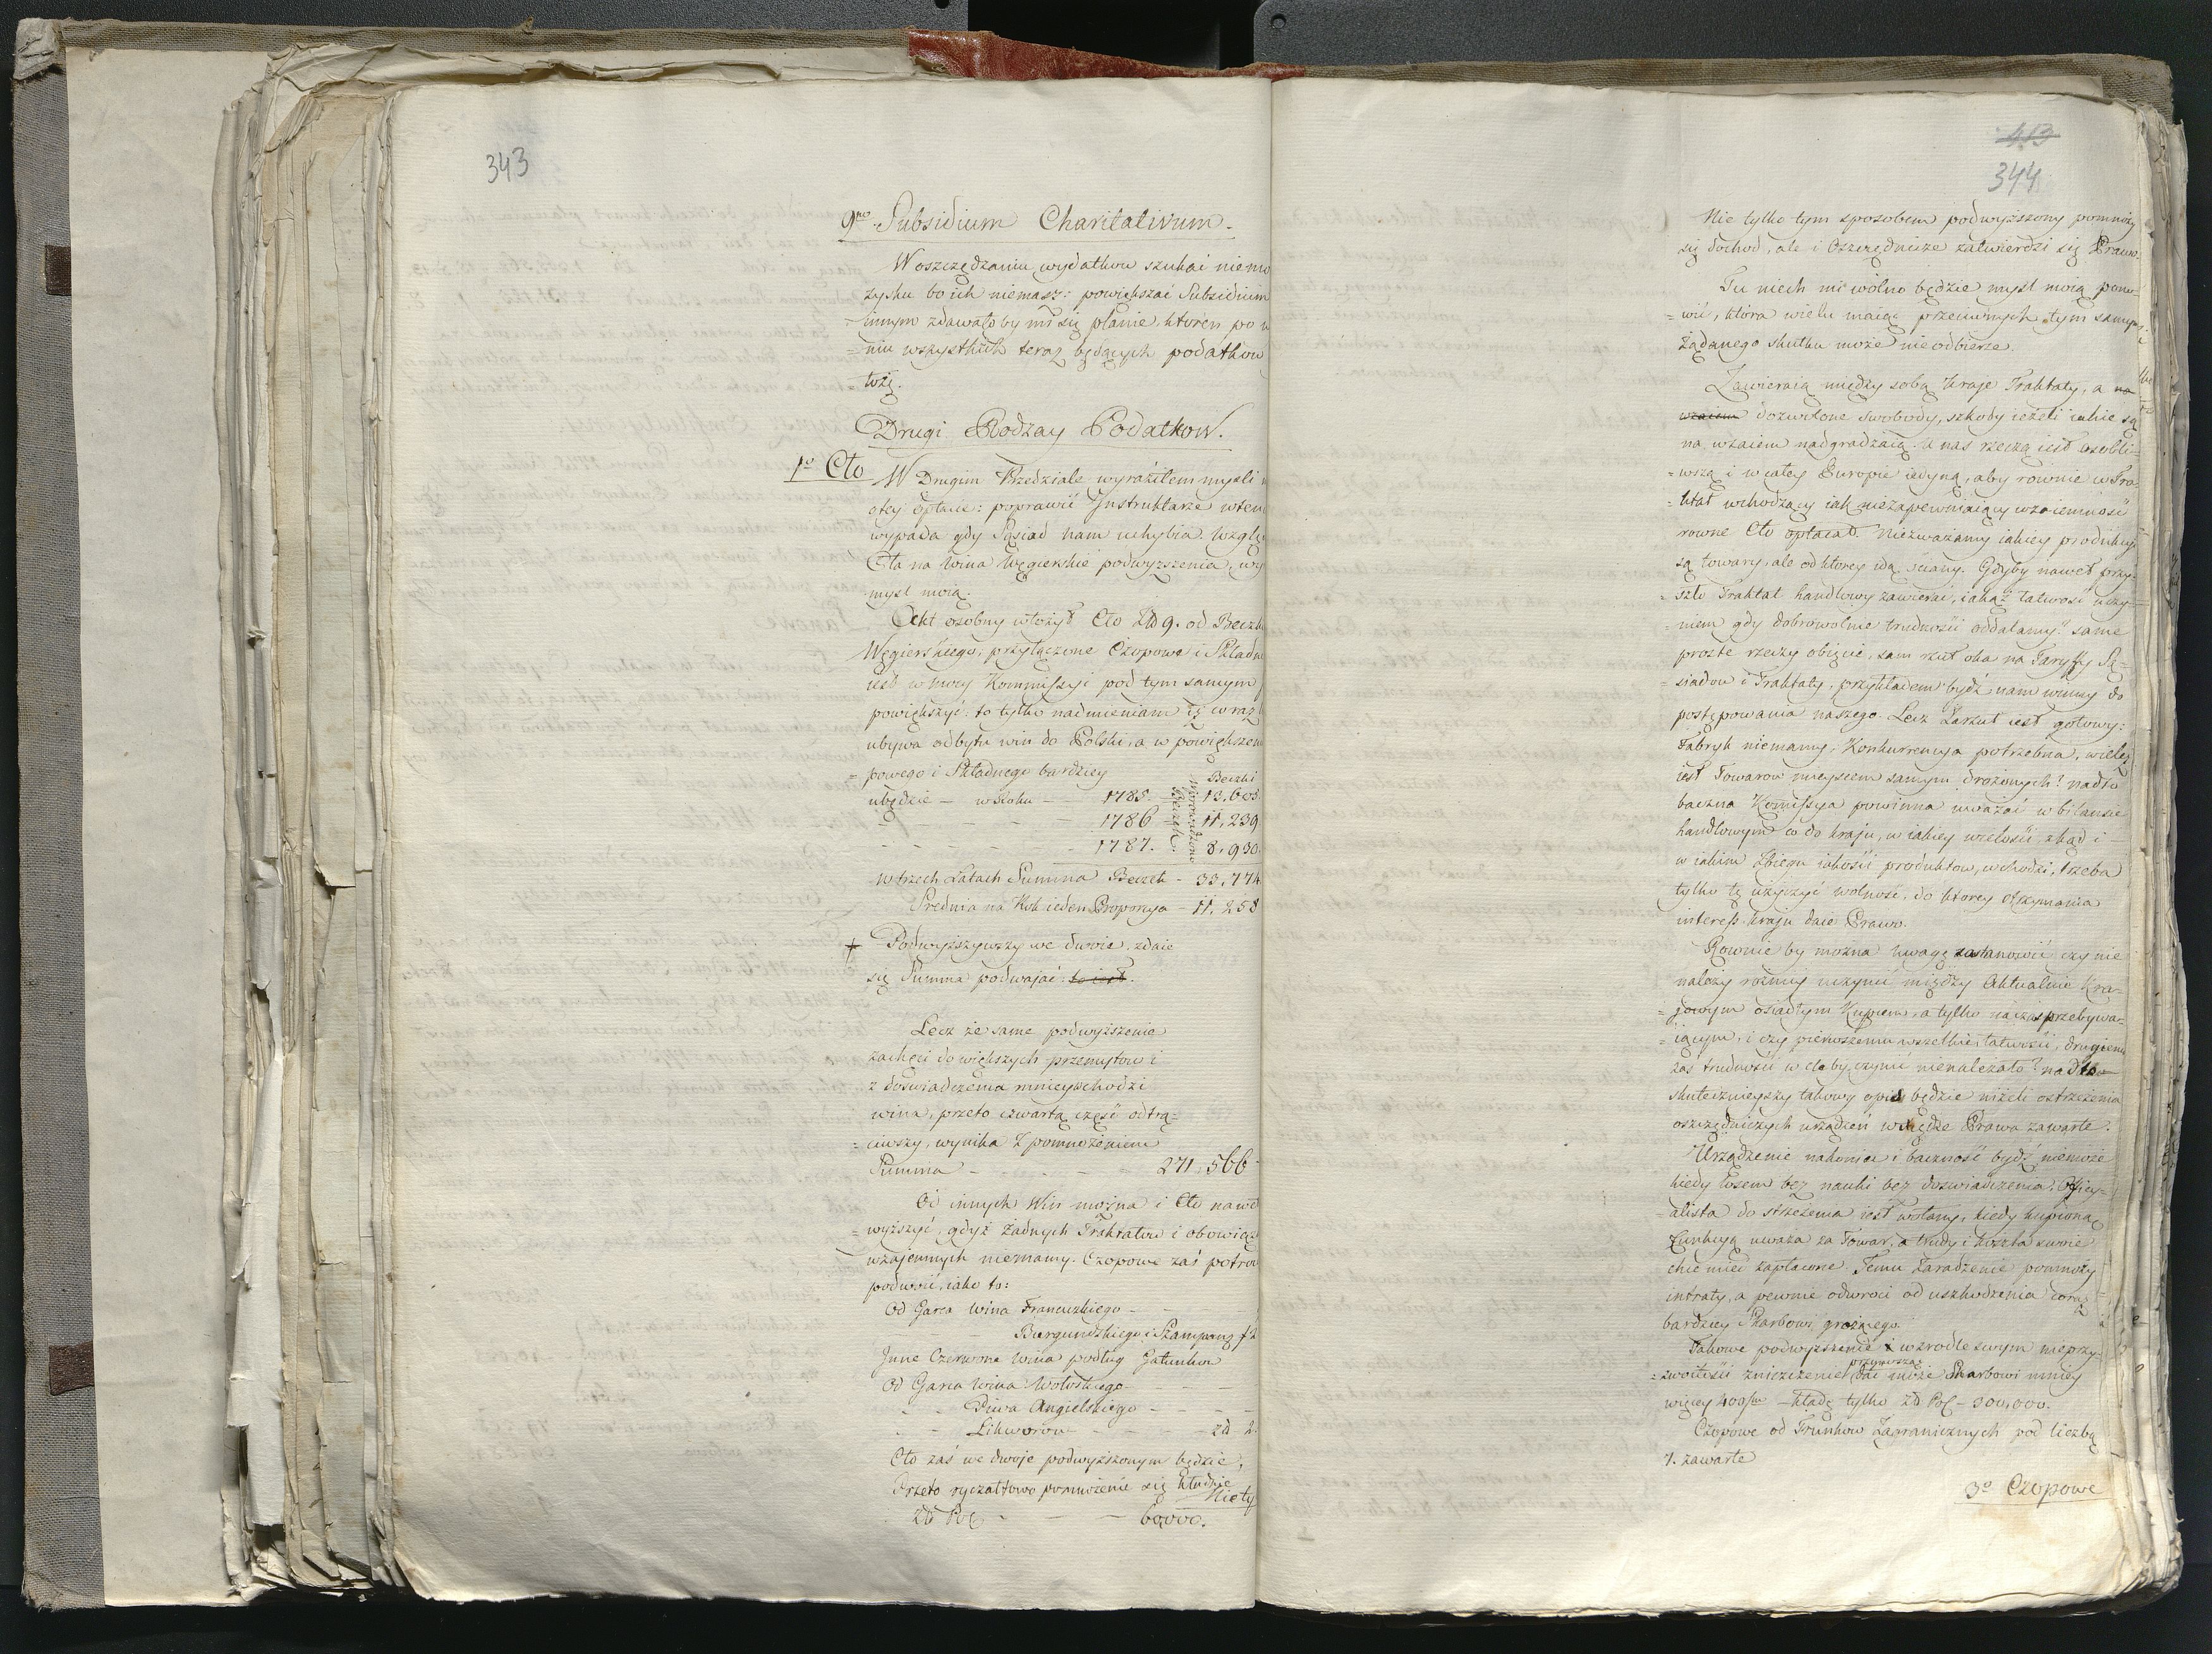 343
9no Subsidium Charitativum.
W oszczędzaniu wydatkow szukać niemo
zysku bo ich niemasz: powiększać Subsidium
=innym zdawałoby mi się planie, ktoren po
=niu wszystkich teraz będących podatkow
łożę.
Drugi Rodzay Podatkow.
1o Cło
W Drugim Przedziale wyraziłem mysli
opłacie: poprawić Instruktarze wten
wypada gdy Sąsiad nam uchybia. Wzglę
Cła na Wina Węgierskie podwyzszenia, wy
mysl moią.
Akt osobny włożył Cło Zł 9. od Beczk
Węgierskiego, przyłączone Czopowe i Składne
iest w mocy Kommissyi pod tym samym
powiększyć: to tylko nadmieniam iż wraz
ubywa odbytu win do Polski, a w powiększen
=powego i Składnego bardziey
ubędzie — w Roku — 1785. — 13,605
1786 — 11,239
1787. 8,930.
Beczki
Wprowadzono Beczek.
W trzech Latach Summa Beczek - 33,774
Srednia na Rok ieden Proporcya - 11,258
+ Podwyższywszy we dwoie, zdaie
się Summa podwajać: to iest.
Lecz że same podwyższenie
zachęci do większych przemysłow i
z doswiadczenia mniey wchodzi
wina, przeto czwartą część odtrą=
=ciwszy, wynika z pomnożeniem
Summa - - - - 271,566
Od innych Win można i Cło nawe
=wyższyć, gdyż żadnych Traktatow i obowiąz
wzajemnych niemamy. Czopowe zaś potro
podwoić, iako to:
Od Garca Wina Francuzkiego -
Burgundzkiego i Szampang f 2
Inne Czerwone Wina podług Gatunkow
Od Garca Wina Wołoskiego -
- - Piwa Angielskiego - - -
- - Likworow - - - - zł 2.
Cło zaś we dwoje podwyższonym będzie,
Przeto ryczałtowo pomnożenie się kładzie
Zł Pol - - - 60,000.
Nie ty
413
344
Nie tylko tym sposobem podwyższony pomnoży
się dochod, ale i Oszczędnicze zatwierdzi się Prawo.
Tu niech mi wolno będzie mysl moią pono=
=wić, ktora wielu maiąc przeciwnych tym samym
żądanego skutku może nieodbierze.
Zawieraią między sobą Kraje Traktaty, a na
wzaiem dozwolone swobody, szkody ieżeli iakie są
na wzaiem nadgradzaią. U nas rzeczą iest osobli=
=wszą i w całey Europie iedyną, aby rownie w Tra
=ktat wchodzący iak niezapewniaiący wzaiemności
rowne Cło opłacał. Niezważamy iakiey produkcyi
są towary, ale od ktorey idą sciany. Gdyby nawet przy=
=szło Traktat handlowy zawierać, iakąż łatwość uczy=
=niem gdy dobrowolnie trudności oddalamy? same
proste rzeczy obięcie, sam rzut oka na Taryffy Są=
=siadow i Traktaty, przykładem bydź nam winny do
postępowania naszego. Lecz Zarzut iest gotowy:
Fabryk niemamy, Konkurrencya potrzebna, wiele
iest Towarow mieyscem samym drożonych? nadto
baczna Komissya powinna uważać w bilansie
handlowym co do kraju, w iakiey wielości, zkąd i
w iakim zbiegu iakości produktow, wchodzi, trzeba
tylko tę użyczyć wolność, do ktorey otrzymania
interess kraju daie Prawo.
Rownie by można Uwagę zastanowić czy nie
należy rożnicy uczynić między Aktualnie Kra=
=jowym osiadłym Kupcem, a tylko na czas przebywa=
=iącym, i czy pierwszemu wszelkie łatwości, drugiemu
zaś trudności w cle by czynić nienależało? nadto
skutecznieyszy takowy opis będzie niżeli ostrzeżenia
oszczędniczych urządzeń w Xiędze Prawa zawarte.
Urządzenie nakoniec i baczność bydź niemoże
kiedy losem bez nauki bez doswiadczenia, Officy=
=alista do strzeżenia iest wołany, kiedy kupioną
Funkcyą uważa za Towar, a trudy i koszta sowicie
chce mieć zapłacone. Temu Zaradzenie pomnoży
intraty, a pewnie odwroci od uszkodzenia coraz
bardziey Skarbowi groźnego.
Takowe podwyższenie i wzrodle swym nieprzy=
przymuszać
=zwoitości zniszczenie dać może Skarbowi mniey
więcey 400/m — kładę tylko zł Pol - 300,000.
Czopowe od Trunkow Zagranicznych pod liczbą
1. zawarte
3o Czopowe